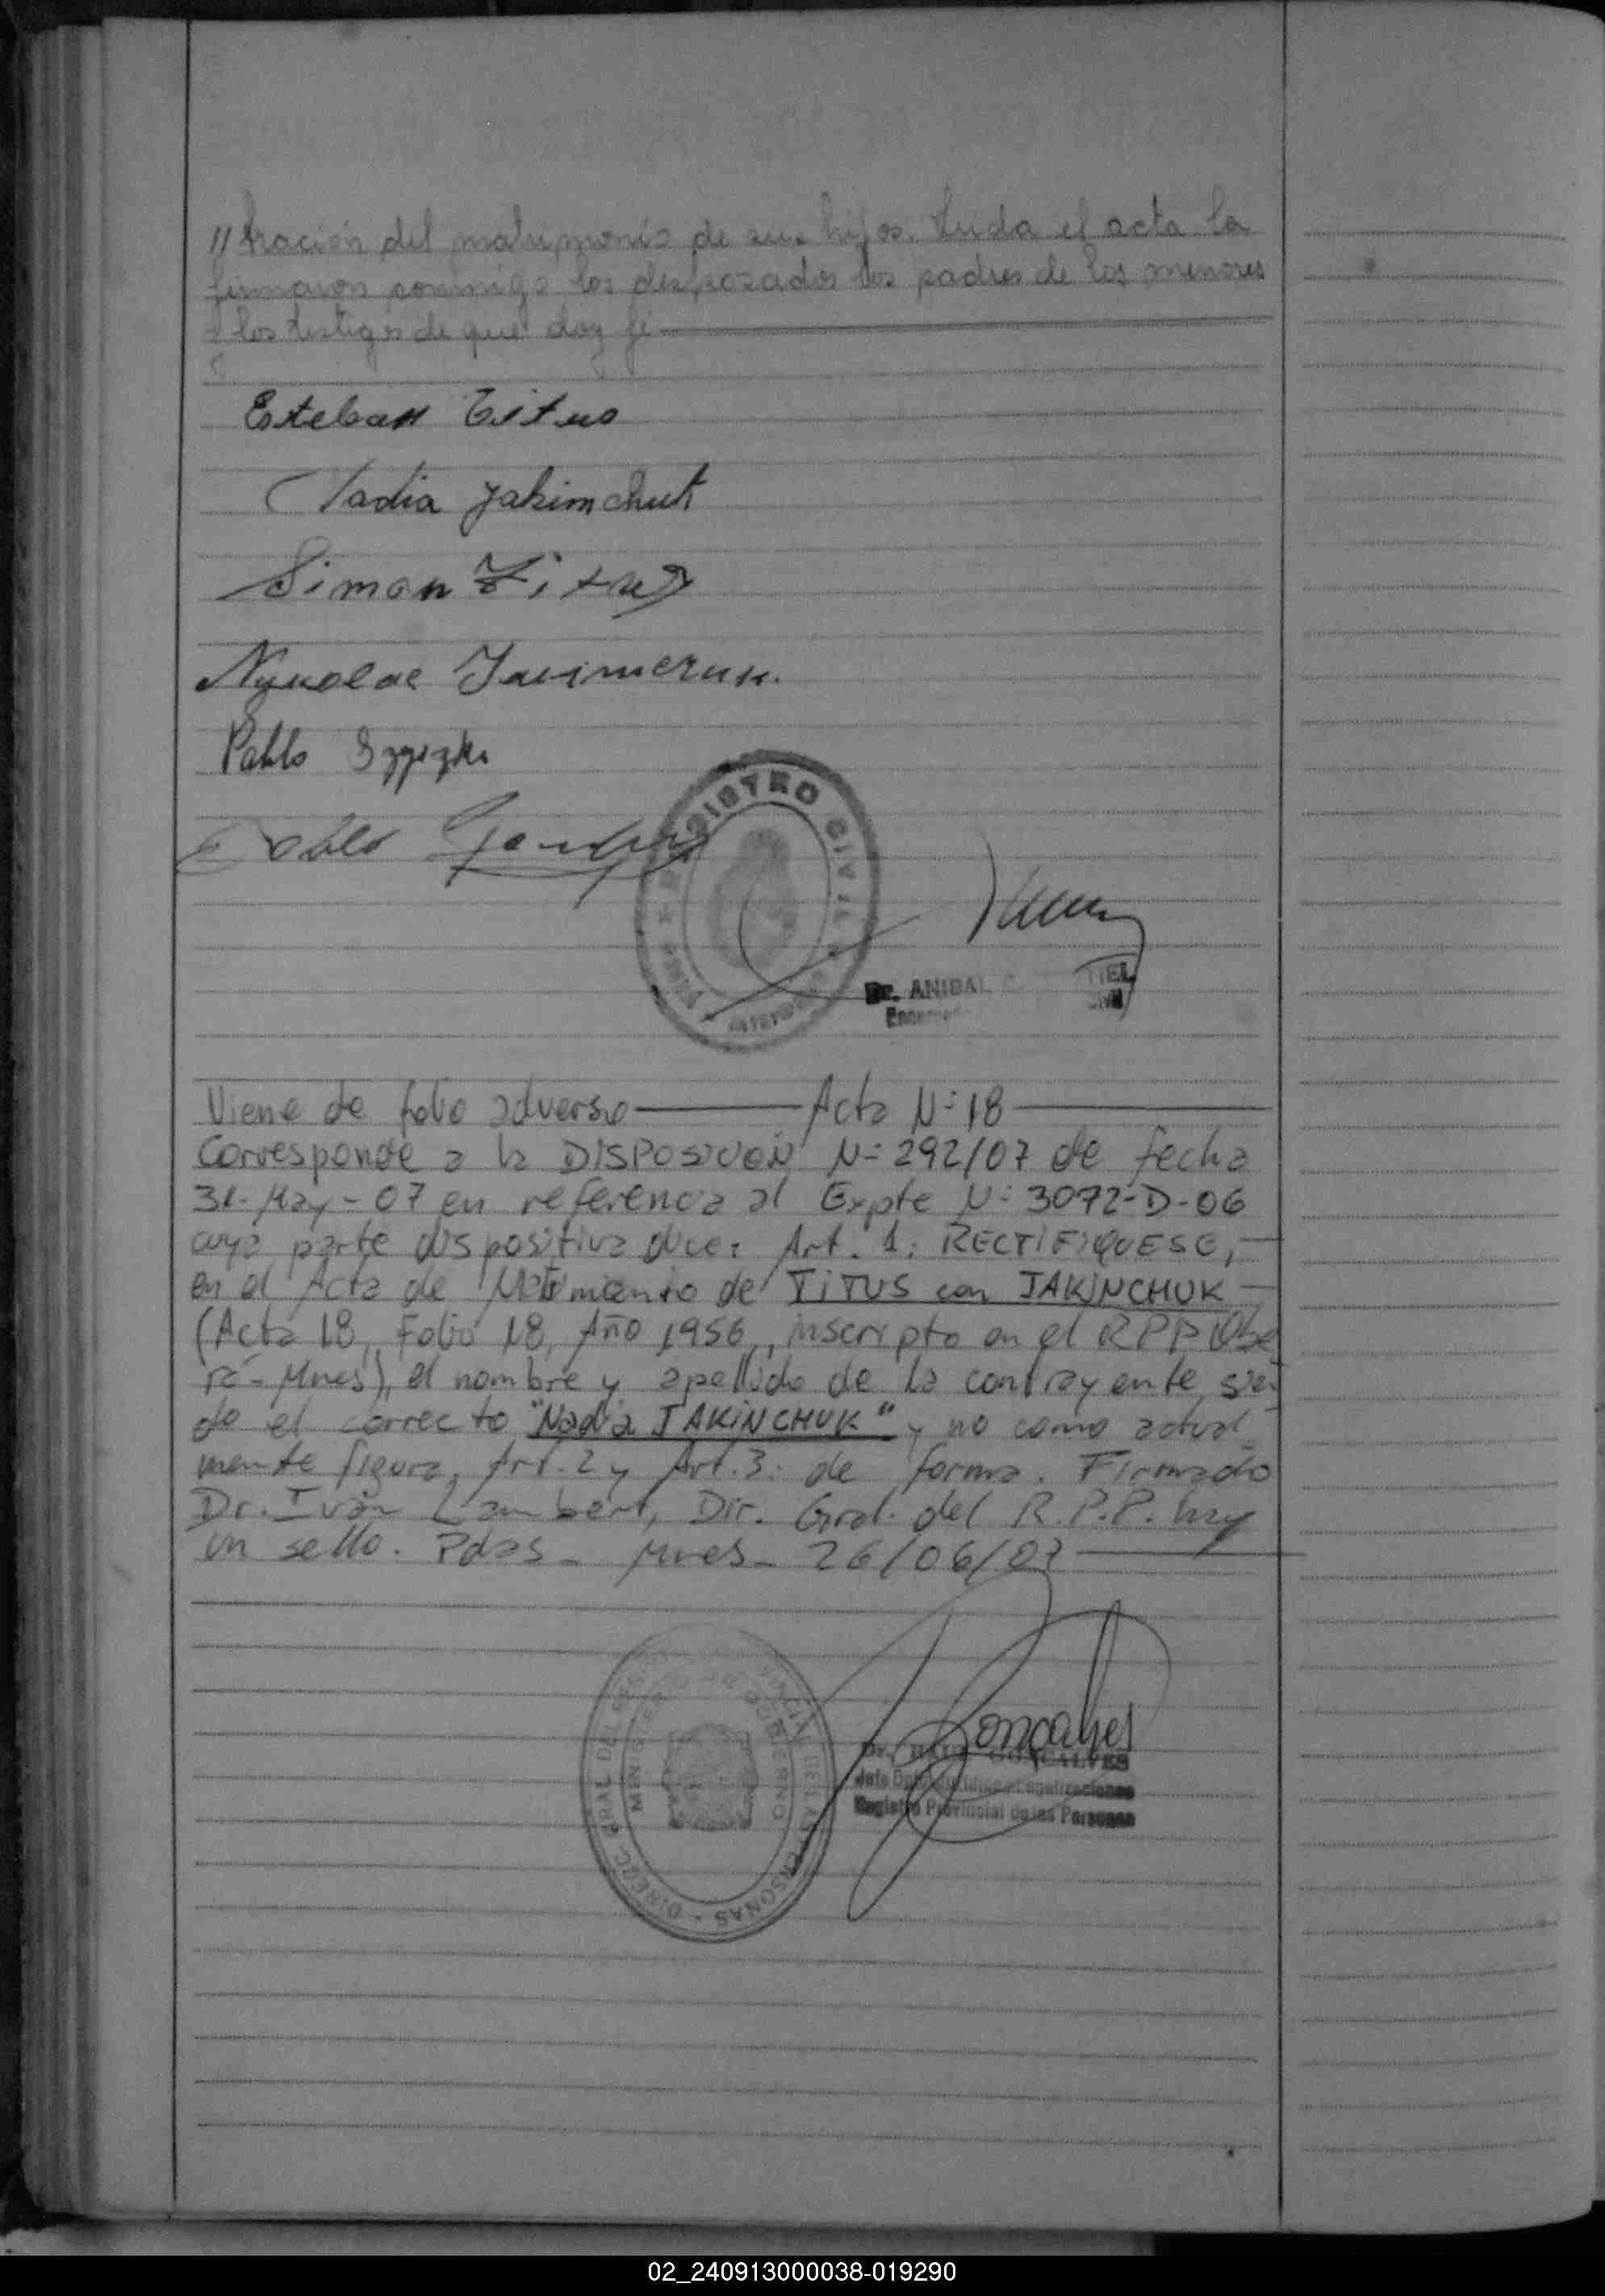 // tración del matrimonio de sus hijos. Leida el acta la
firmaron conmigo los desposados los padres de los menores
y los testigos de que doy fé
Esteban Titus
Nadia Jakimchuk
Simon Titus
Pablo
Pablo
REGISTRO CIVIL
Dr. ANIBAL
Viene de folio adverso — Acta N= 18 —
Corresponde a la DISPOSICIÓN N= 292/07 de fecha
31-May-07 en referencia al Expte N= 3072-D-06
cuya parte dispositiva dice: Art. 1: RECTIFIQUESE,
en el Acta de de TITUS con JAKINCHUK
(Acta 18, Folio 18, Año 1956, inscripto en el RPP Obe
rá - Mnes), el nombre y apellido de la contrayente, sien
do el correcto "Nadia JAKINCHUK" y no como actual
mente figura, Art. 2 y Art. 3: de forma. Firmado
Dr. Iván Lambert, Dir. Gral. del R.P.P. hay
un sello. Pdas - Mnes - 26/06/07
DIRECC. GRAL DEL DE LAS PERSONAS
MINISTERIO DE GOBIERNO
Gonçalves
Dr. GONÇALVES
Jefe Dpto.
Registro Provincial de las Personas
02_240913000038-019290